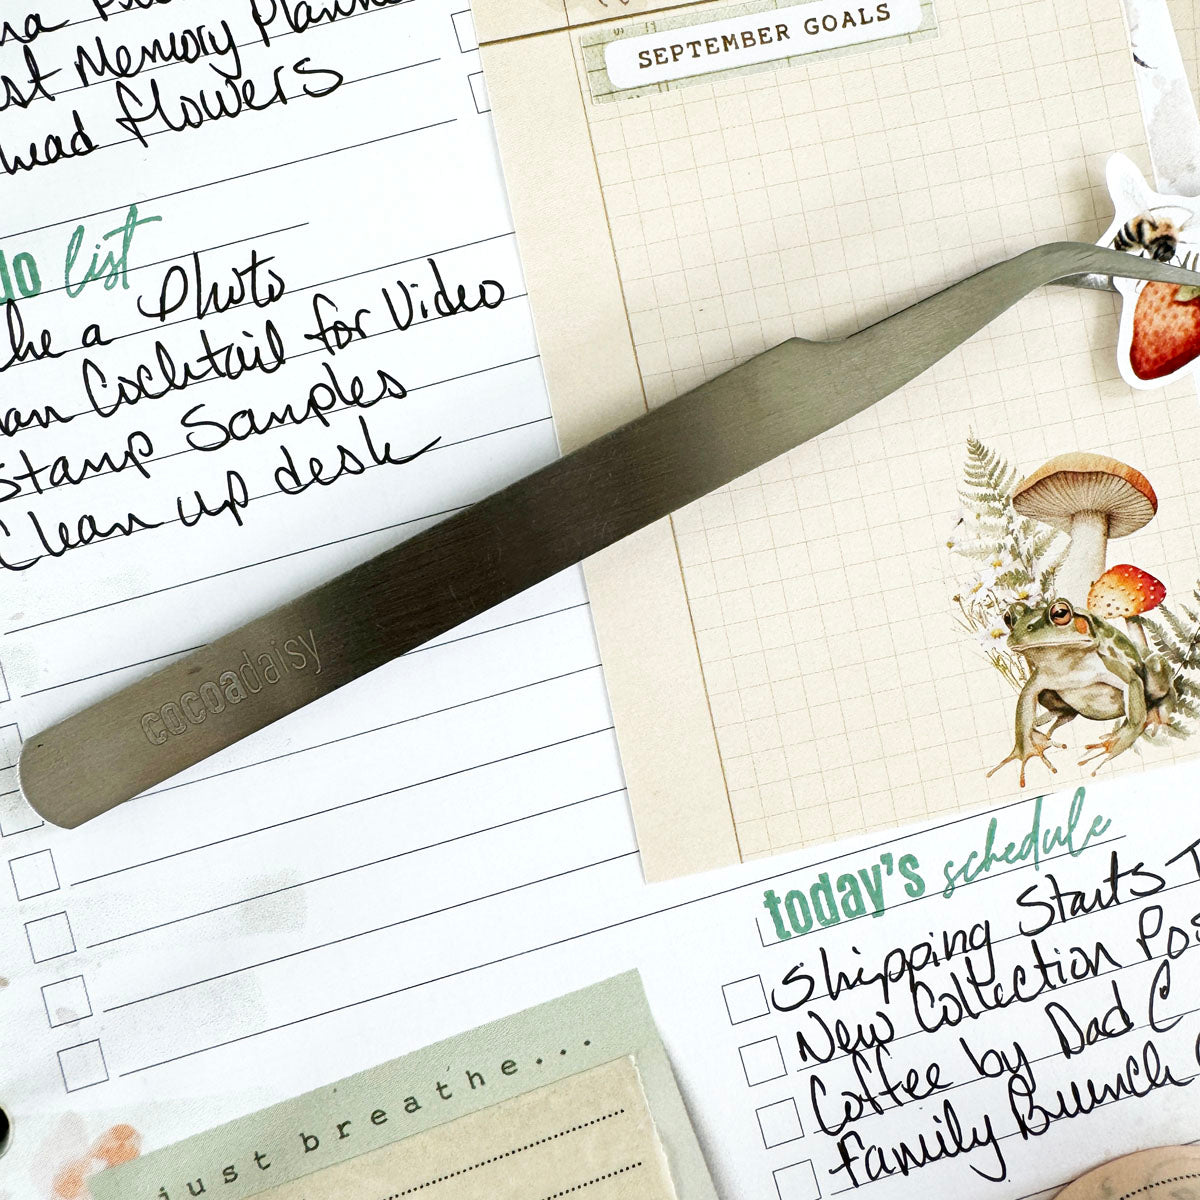 st Memory Planne
head flowers
do list
a Photo
Cocktail for Video
Stamp Samples
Clean up desk
SEPTEMBER GOALS
cocoadaisy
today's schedule
Shipping Starts T
New Collection Pos
Coffee by Dad C
Family Brunch
just breathe...